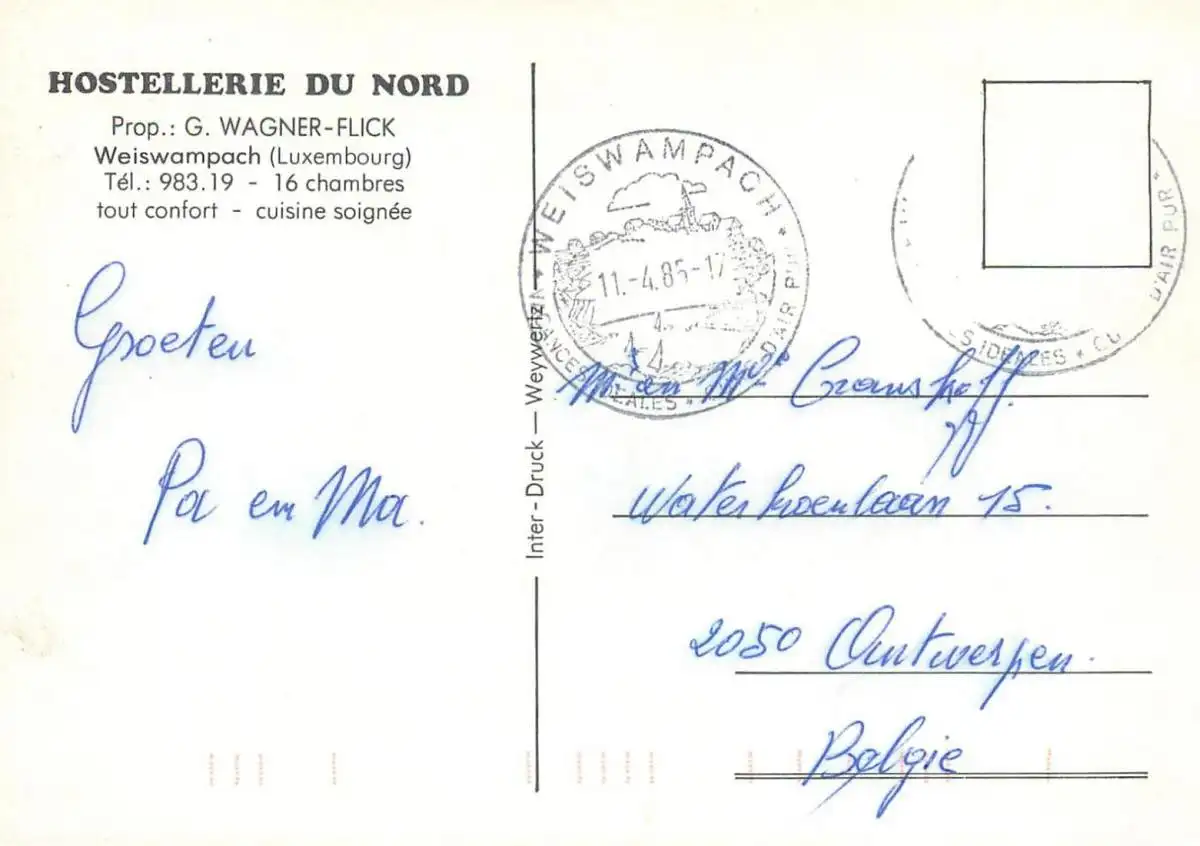 HOSTELLERIE DU NORD
Prop.: G. WAGNER-FLICK
Weiswampach (Luxembourg)
Tél.: 983.19 - 16 chambres
tout confort - cuisine soignée
Groeten
Pa en Ma.
Inter-Druck — Weywertz
WEISWAMPACH
11.-4.85-17
D'AIR PUR
D'AIR PUR
en Mvr Cranshoff.
Waterhoenlaan 15.
2050 Antwerpen.
Belgie